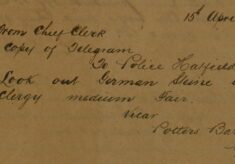 15th Apr
From Chief Clerk
Copy of Telegram
To Police Hatfield
Look out German Shine
Clergy medium Fair.
Vicar
Potters Ba